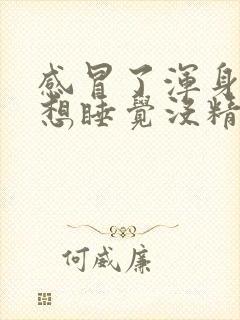 感冒了渾身
想睡覺沒精
何威廉